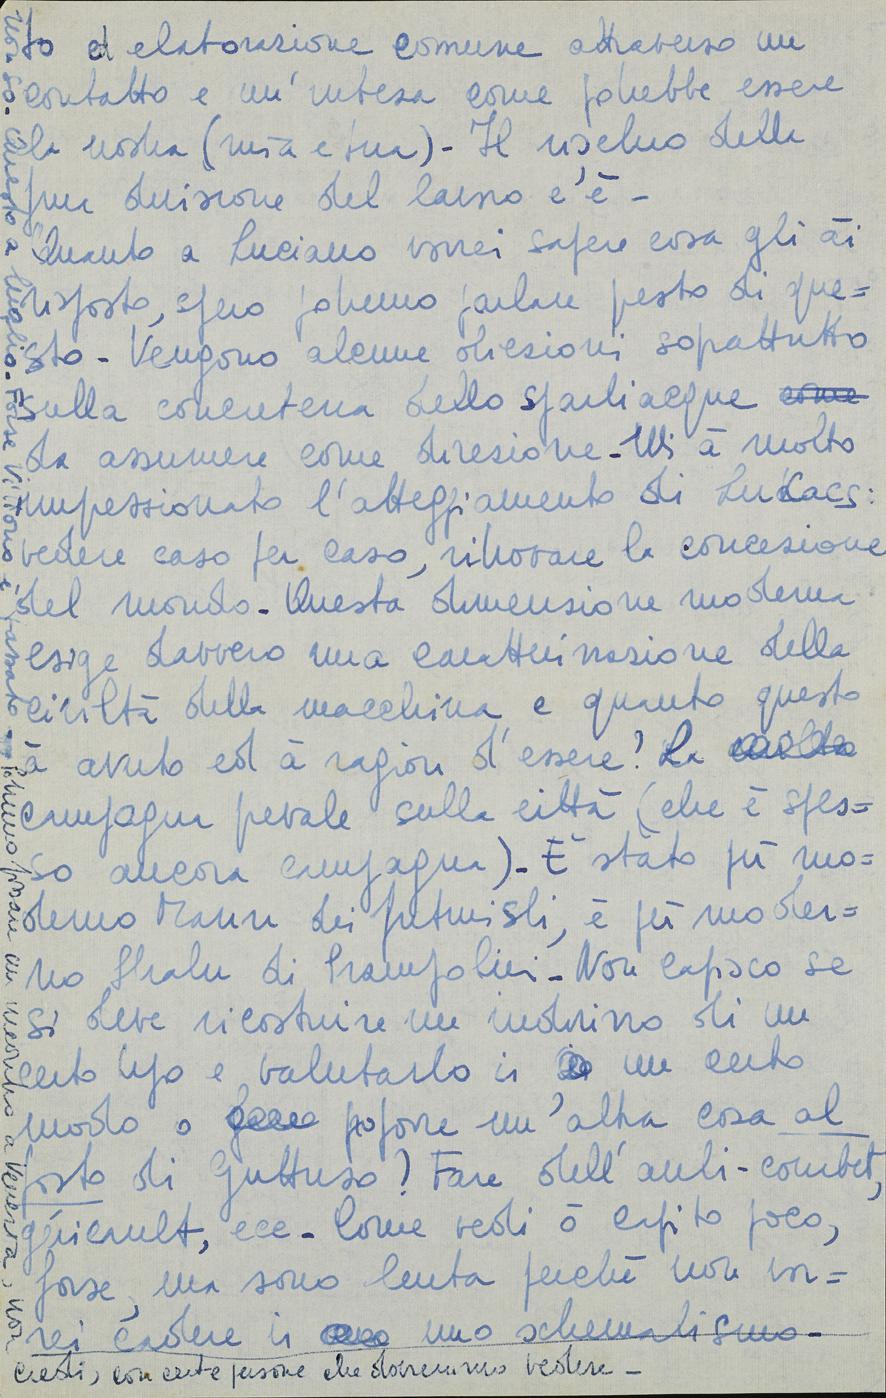 to ed elaborazione comune attraverso un
contatto e un'intesa come potrebbe essere
la nostra (mia e tua) - Il rischio della
pura divisione del lavoro c'è -
Quanto a Luciano vorrei sapere cosa gli ài
risposto, spero potremo parlare presto di que=
sto - Vengono alcune obiezioni sopattutto
sulla concretezza dello spartiacque come
da assumere come direzione - Mi à molto
impessionato l'atteggiamento di Lukacs:
vedere caso per caso, ritrovare la concezione
del mondo - Questa dimensione moderna
esige davvero una caratterizzazione della
civiltà della macchina e quanto questo
à avuto ed à ragion d'essere? La
campagna pevale sulla città (che è spes=
so ancora campagna) - È stato più mo=
derno Mann dei futuristi, è più moder=
no Strahv di Prampolini - Non capisco se
si deve ricostruire un indirizzo di un
certo tipo e valutarlo in un certo
modo o poporre un'altra cosa al
posto di Guttuso? Fare dell'anti-courbet,
géricault, ecc - Come vedi ò capito poco,
forse, ma sono lenta perché non vor=
rei cadere in uno schematismo -
non so - Questo a luglio - Forse Vittorio è passato - potremo fissare un incontro a Venezia, non
credi, con certe persone che dovremmo vedere -